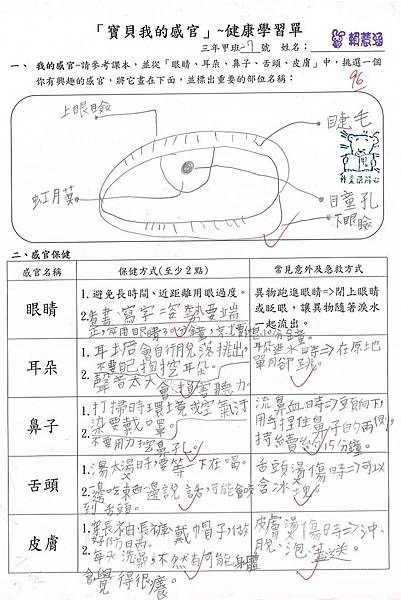 「寶貝我的感官」~健康學習單
三年甲班-7號 姓名: 賴慧涵
一、 我的感官~請參考課本，並從「眼睛、耳朵、鼻子、舌頭、皮膚」中，挑選一個
你有興趣的感官，將它畫在下面，並標出重要的部位名稱：
96
上眼瞼
睫毛
虹膜
瞳孔
下眼瞼
二、感官保健
感官名稱 保健方式(至少2點) 常見意外及急救方式
眼睛
1.避免長時間、近距離用眼過度。
2.看書、寫字、姿勢要端
正，每用眼睛30分鐘，就要休息10分鐘。
異物跑進眼睛=>閉上眼睛
或眨眼，讓異物隨著淚水
一起流出。
耳朵
1.耳垢會自行脫落挑出，
不要自己挖耳朵。
2.聲音太大會損害聽力。
耳朵進水時=>在原地
單腳跳。
鼻子
1.打掃時環境或空氣汙
染要戴口罩。
2.不要用力挖鼻孔。
流鼻血時=>頭向下，
用手捏住鼻子的兩側，
持續約15分鐘。
舌頭
1.湯太燙時，要等一下在喝。
2.邊吃東西一邊說話，可能會咬
到舌頭。
舌頭燙傷時=>可以
含冰塊。
皮膚
1.穿長袖長褲、戴帽子，做
好防曬。
2.每天洗澡，不然有可能身體
會覺得很癢。
皮膚燙傷時=>沖、
脫、泡、蓋、送。